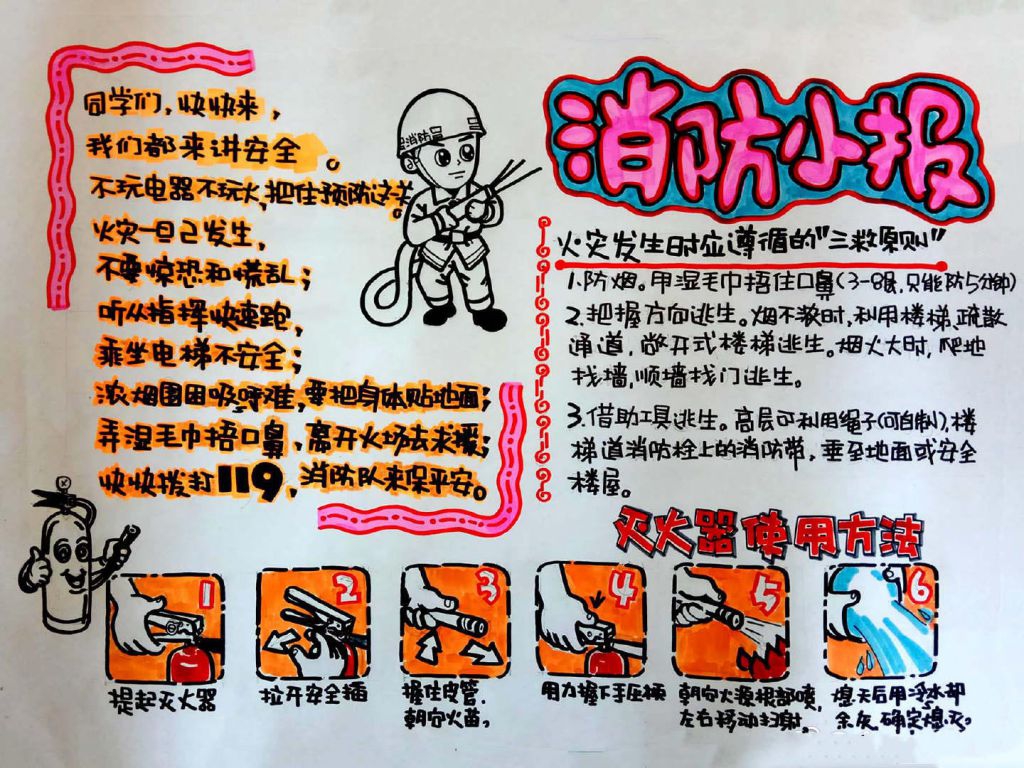 消防小报
同学们，快快来，
我们都来讲安全。
不玩电器不玩火，把住预防这关。
火灾一旦已发生，
不要惊恐和慌乱；
听从指挥快速跑，
乘坐电梯不安全；
浓烟围困呼吸难，要把身体贴地面；
弄湿毛巾捂口鼻，离开火场去求援；
快快拨打119，消防队来保平安。
消防员
火灾发生时应遵循的"三救原则"
1.防烟。用湿毛巾捂住口鼻（3-8层，只能防5分钟）
2.把握方向逃生。烟不浓时，利用楼梯、疏散
通道，敞开式楼梯逃生。烟火大时，爬地
找墙，顺墙找门逃生。
3.借助工具逃生。高层可利用绳子（可自制），楼
梯道消防栓上的消防带，垂至地面或安全
楼屋。
灭火器使用方法
1
提起灭火器
2
拉开安全插
3
握住皮管，
朝向火苗。
4
用力握下手压柄
5
朝向火源根部喷，
左右移动扫射。
6
熄灭后用冷水却
余灰确定熄灭。